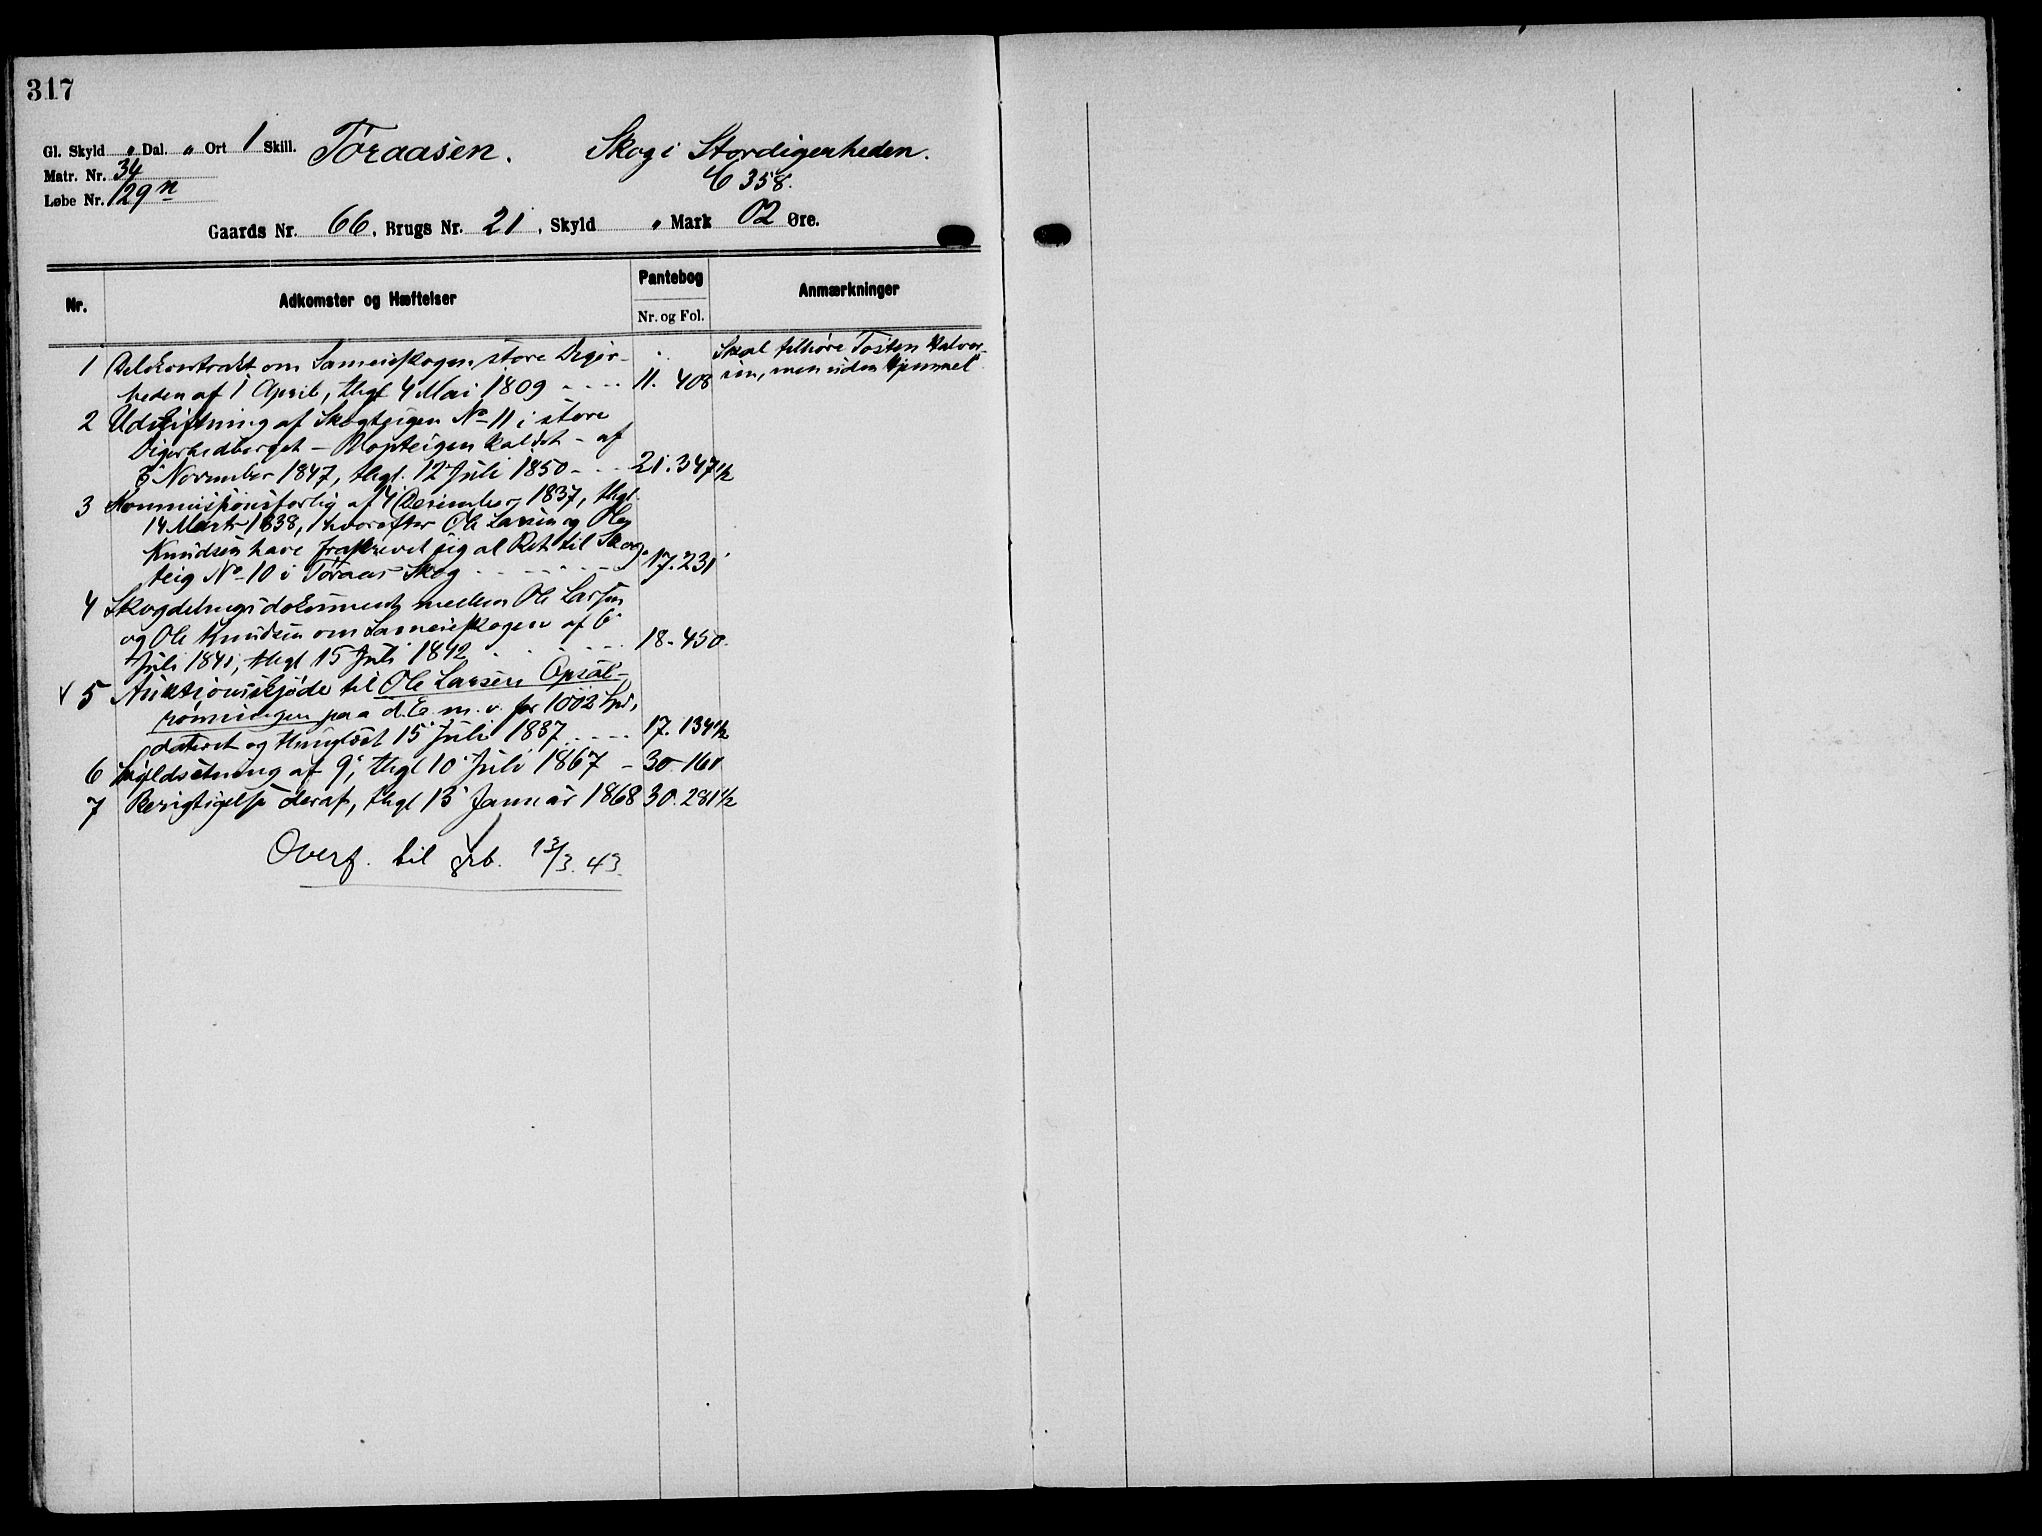 317
Gl. Skyld " Dal. " Ort 1 Skill. Töraasen. Skog i Stordigerheden.
Matr. Nr. 34 C 358.
Løbe Nr. 129n
Gaards Nr. 66, Brugs Nr. 21, Skyld " Mark 02 Øre.
Nr. Adkomster og Hæftelser Pantebog Nr. og Fol. Anmærkninger
1 Delekontrakt om Sameieskogen store Diger- Skal tilhøre Tosten Halvor-
heden af 1 April, thgl 4 Mai 1809 - - - - 11. 408 sen, men uden Hjemmel
2 Udskiftning af Skogteigen No 11 i store
Digerhedberget - kaldet - af
6 November 1847, thgl. 12 Juli 1850 - - - 21. 347 1/2
3 Kommissionsforlig af 4 December 1837, thgl.
14 Marts 1838, hvorefter Ole Larsen og Ole
Knudsen have fraskrevet sig al Ret til Skog-
teig No 10 i Töraas Skog - - - - - - 17. 231
4 Skogdelingsdokument mellem Ole Larsen
og Ole Knudsen om Sameieskogen af 6
Juli 1841, thgl 15 Juli 1842 - - - - - 18. 450.
√ 5 Auktionsskjöde til Ole Larsen Opsal-
rönningen paa d. E. m. v. for 1002 Spd,
dateret og thinglæst 15 Juli 1837 - - - - 17. 134 1/2
6 Skyldsetning af 9, thgl 10 Juli 1867 - 30. 161
7 Berigtigelse deraf, thgl 13 Januar 1868 30. 281 1/2
Overf. til grb. 13/3. 43.